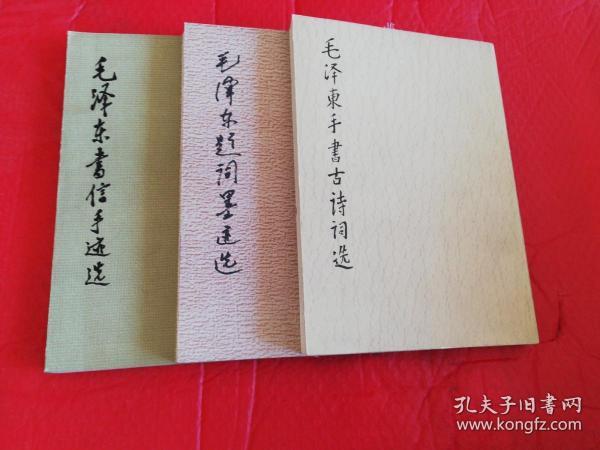 毛泽东书信手迹选
毛泽东题词墨迹选
毛泽東手書古诗词选
孔夫子旧书网
www.kongfz.com